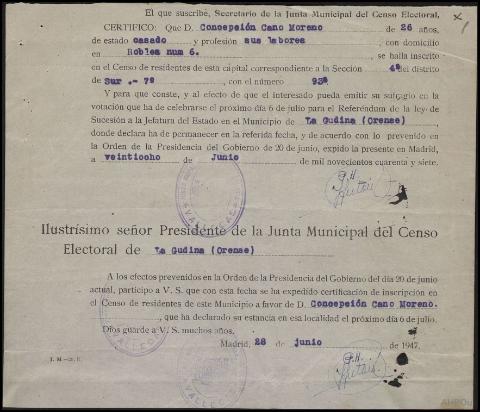 El que suscribe, Secretario de la Junta Municipal del Censo Electoral,
CERTIFICO: Que D. Concepción Cano Moreno de 26 años,
de estado casado y profesión sus labores, con domicilio
en Robles num 6. se halla inscrito
en el Censo de residentes de esta capital correspondiente a la Sección 4ª del distrito
de Sur .- 7ª, con el número 93ª
Y para que conste, y al efecto de que el interesado pueda emitir su sufragio en la
votación que ha de celebrarse el próximo día 6 de julio para el Referéndum de la ley de
Sucesión a la Jefatura del Estado en el Municipio de La Gudina (Orense)
donde declara ha de permanecer en la referida fecha, y de acuerdo con lo prevenido en
la Orden de la Presidencia del Gobierno de 20 de junio, expido la presente en Madrid,
a veintiocho de Junio de mil novecientos cuarenta y siete.
P.H.
VALLECAS
Ilustrísimo señor Presidente de la Junta Municipal del Censo
Electoral de La Gudina (Orense)
A los efectos prevenidos en la Orden de la Presidencia del Gobierno del día 20 de junio
actual, participo a V. S. que con esta fecha se ha expedido certificación de inscripción en
el Censo de residentes de este Municipio a favor de D. Concepción Cano Moreno.
, que ha declarado su estancia en esa localidad el próximo día 6 de julio.
Dios guarde a V. S. muchos años.
Madrid, 28 de junio de 1947.
P.H.
VALLECAS
AHPOu